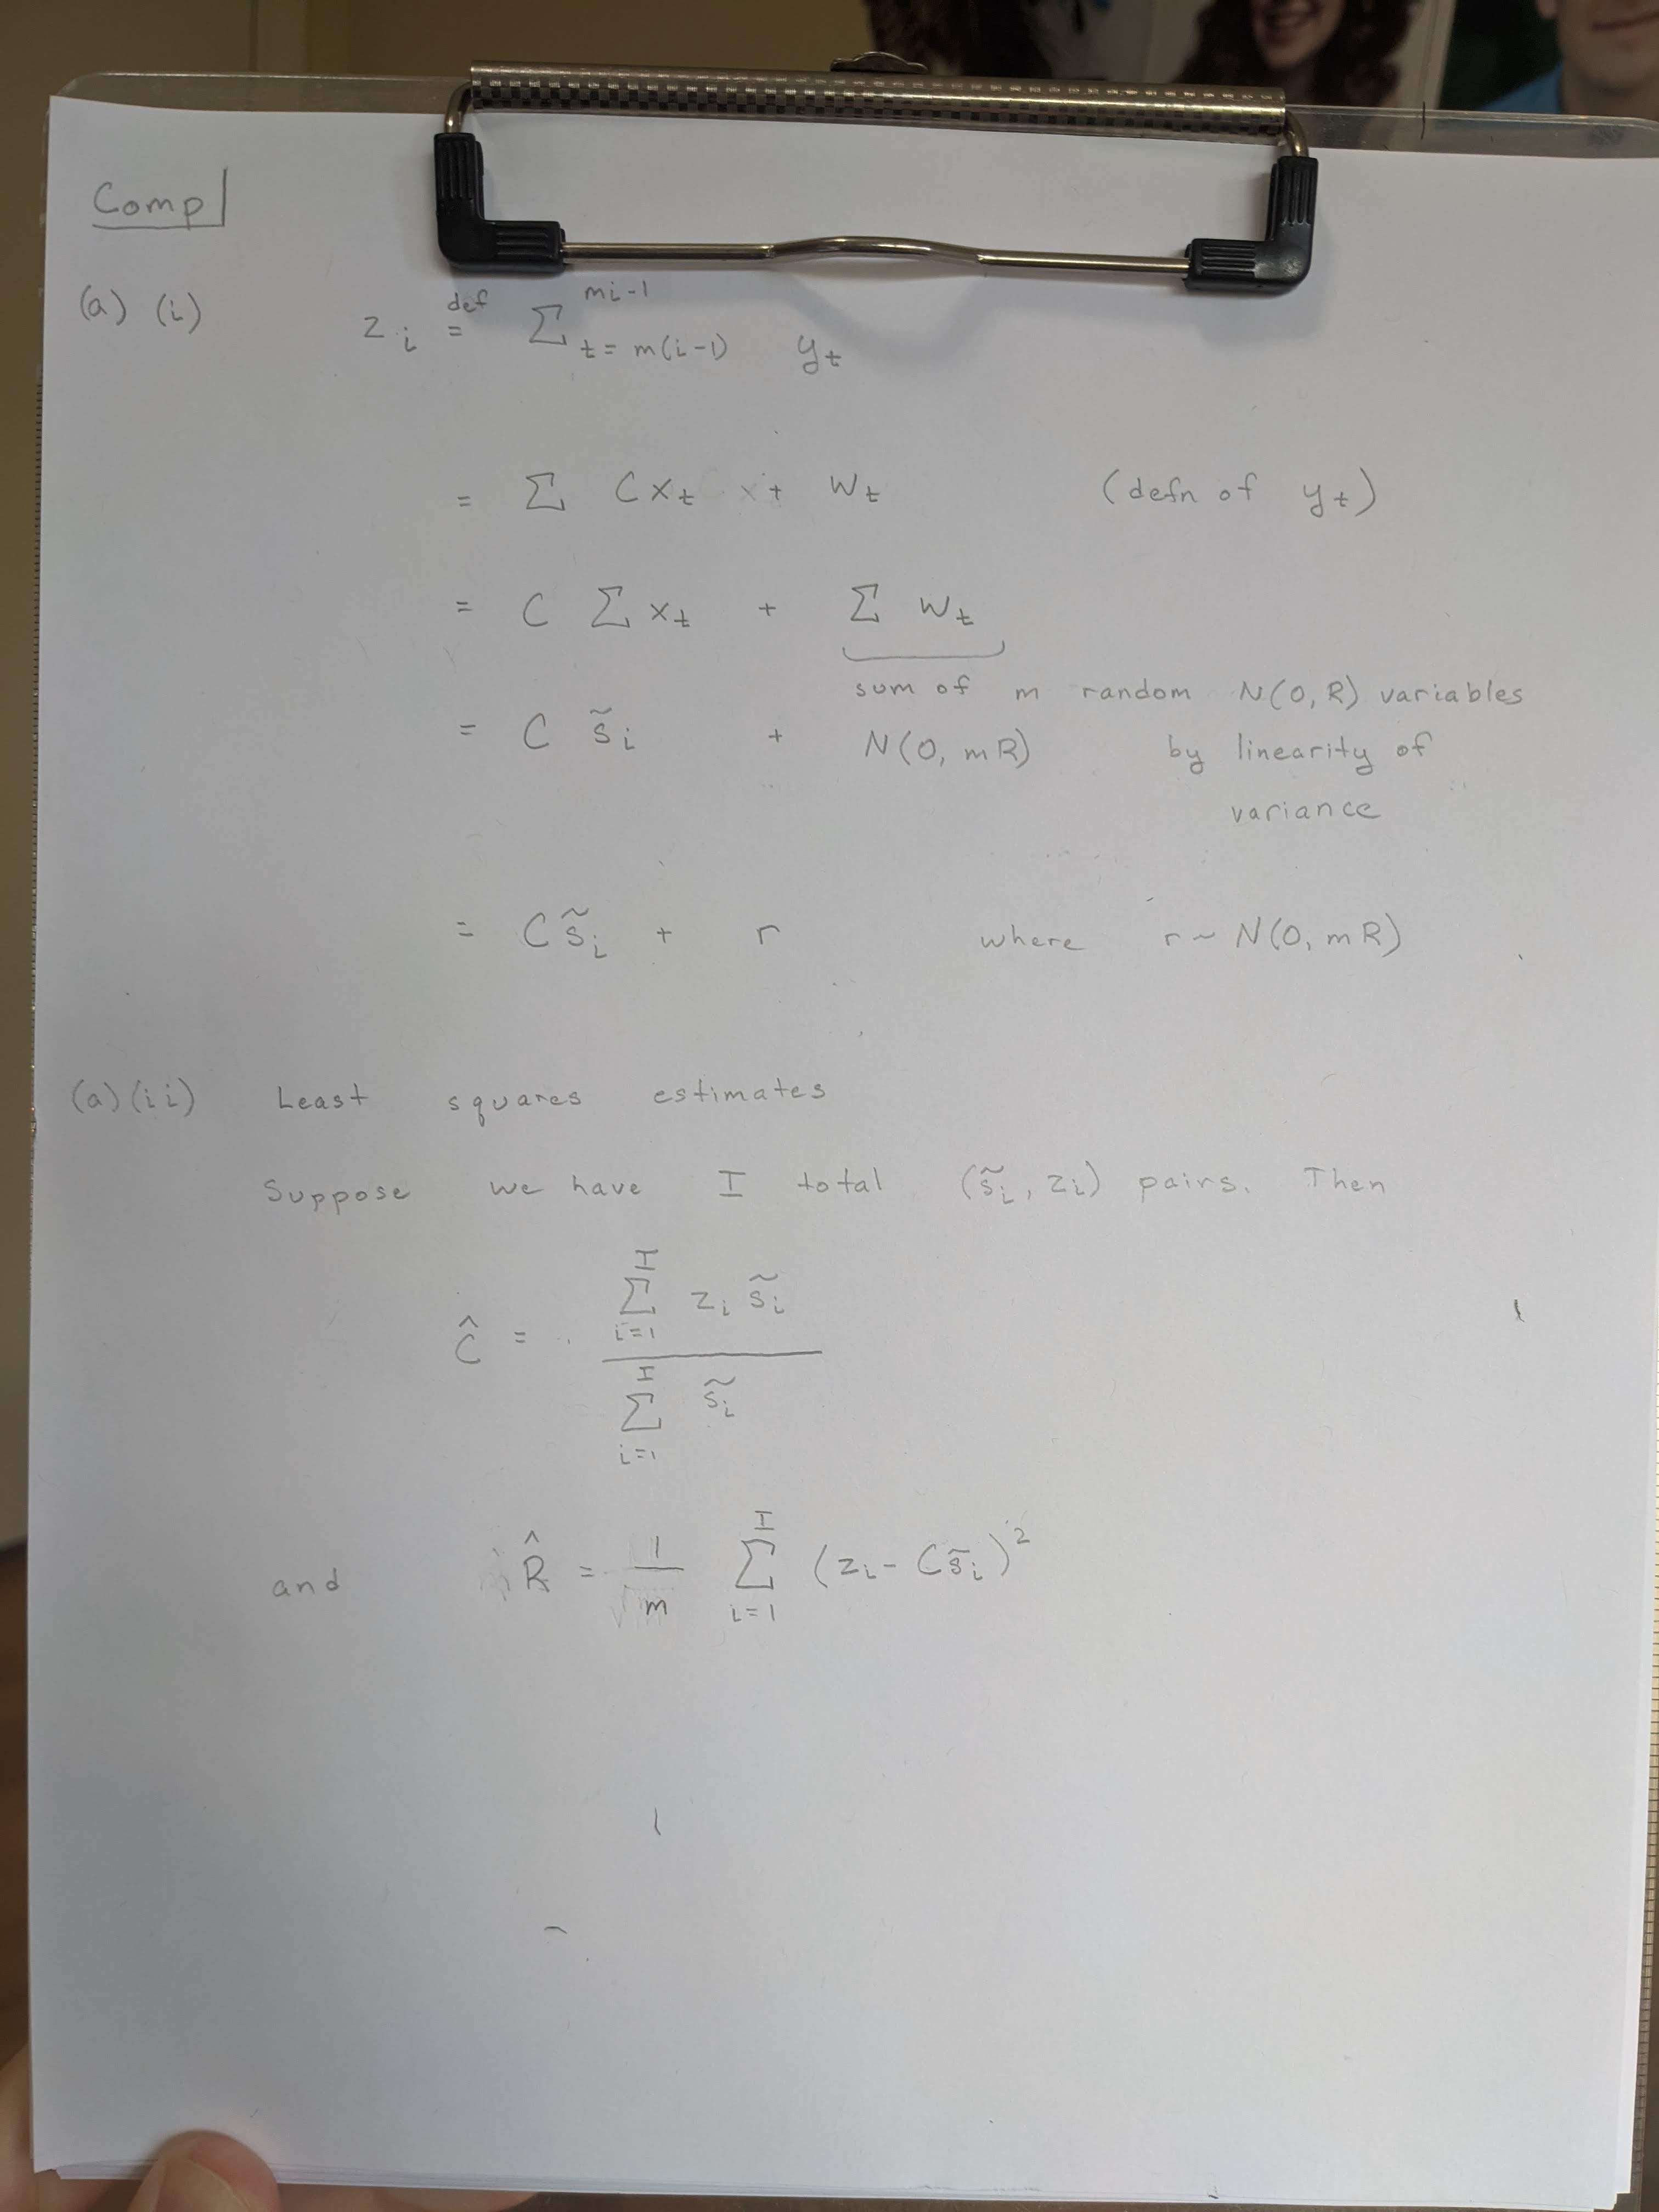 Comp
(a) (i) z_i def = Σ_{t=m(i-1)}^{mi-1} y_t
= Σ Cx_t + w_t (defn of y_t)
= C Σ x_t + Σ w_t
sum of m random N(0,R) variables
= C s̃_i + N(0, mR) by linearity of
variance
= C s̃_i + r where r ~ N(0, mR)
(a) (ii) Least squares estimates
Suppose we have I total (s̃_i, z_i) pairs. Then
Ĉ = Σ_{i=1}^{I} z_i s̃_i / Σ_{i=1}^{I} s̃_i
and R̂ = 1/m Σ_{i=1}^{I} (z_i - C s̃_i)^2